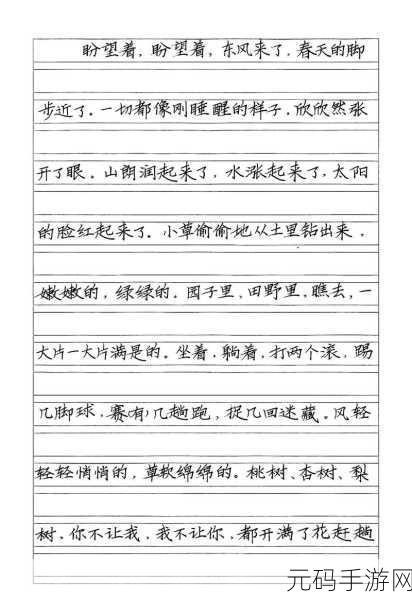 盼望着，盼望着，东风来了，春天的脚
步近了。一切都像刚睡醒的样子，欣欣然张
开了眼。山朗润起来了，水涨起来了，太阳
的脸红起来了。小草偷偷地从土里钻出来，
嫩嫩的，绿绿的。园子里，田野里，瞧去，一
大片一大片满是的。坐着，躺着，打两个滚，踢
几脚球，赛几趟跑，捉几回迷藏。风轻
轻轻悄悄的，草软绵绵的。桃树、杏树、梨
树，你不让我，我不让你，都开满了花赶趟
元码手游网